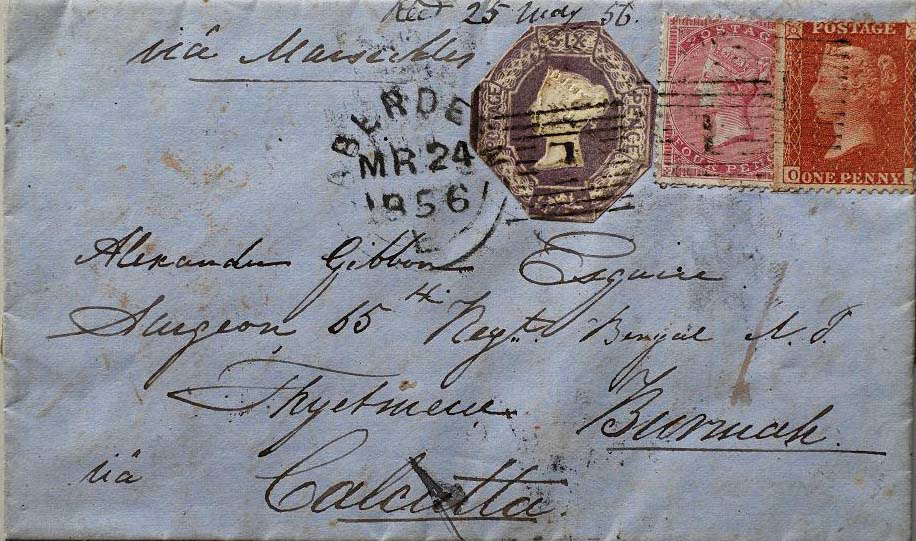 Recd 25 May 56.
viâ Marseilles.
ABERDE
MR 24
1856
POSTAGE SIX PENCE
POSTAGE
FOUR PENCE
POSTAGE
O ONE PENNY
1
Alexander Gibbon Esquire
Surgeon 65th Regt. Bengal N. I.
Thyetmew.
Burmah.
viâ Calcutta.